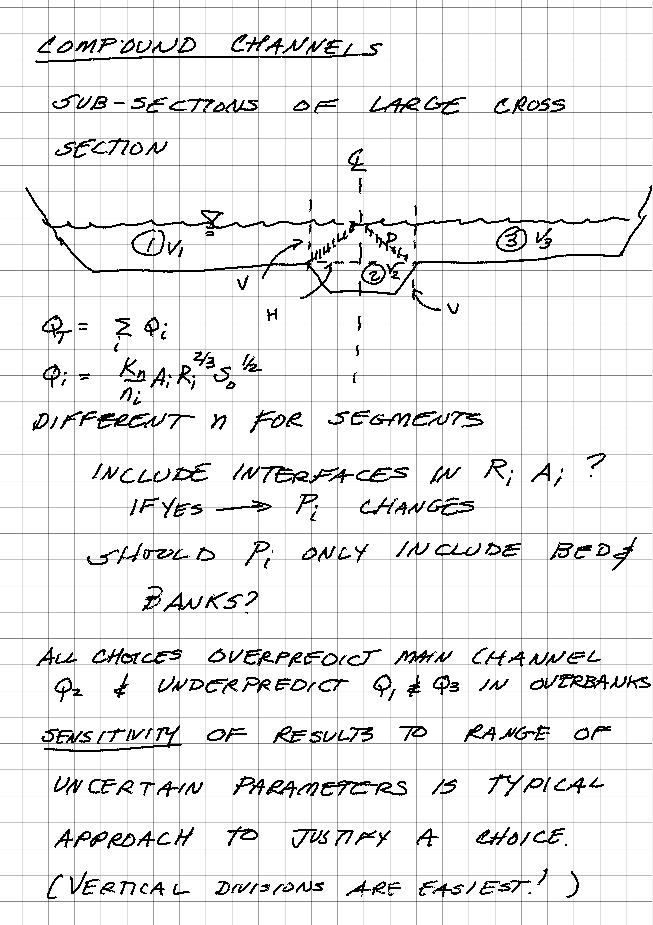 COMPOUND CHANNELS
SUB-SECTIONS OF LARGE CROSS
SECTION
℄
① V₁
② V₂
③ V₃
D
V
H
V
Q_T = Σ_i Q_i
Q_i = K_n/n_i A_i R_i^2/3 S_o^1/2
DIFFERENT n FOR SEGMENTS
INCLUDE INTERFACES IN R_i A_i ?
IF YES → P_i CHANGES
SHOULD P_i ONLY INCLUDE BED &
BANKS?
ALL CHOICES OVERPREDICT MAIN CHANNEL
Q₂ & UNDERPREDICT Q₁ & Q₃ IN OVERBANKS
SENSITIVITY OF RESULTS TO RANGE OF
UNCERTAIN PARAMETERS IS TYPICAL
APPROACH TO JUSTIFY A CHOICE.
(VERTICAL DIVISIONS ARE EASIEST!)